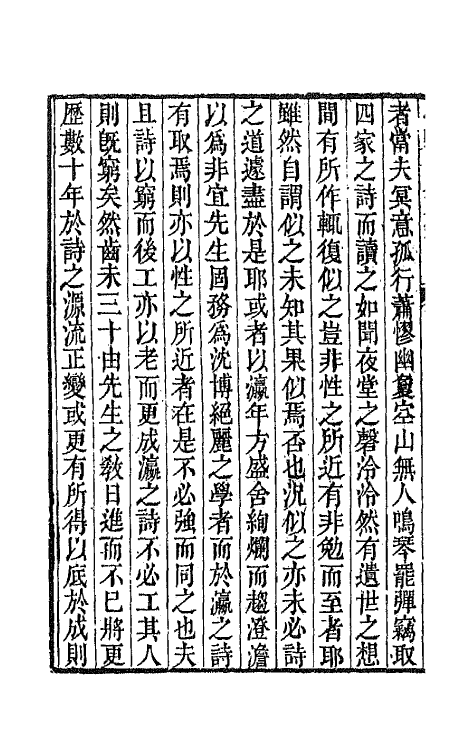 者當夫冥意孤行蕭憀幽敻空山無人鳴琴罷彈竊取
四家之詩而讀之如聞夜堂之磬泠泠然有遺世之想
間有所作輒復似之豈非性之所近有非勉而至者耶
雖然自謂似之未知其果似焉否也況似之亦未必詩
之道遽盡於是耶或者以瀛年方盛舍絢爛而趨澄澹
以爲非宜先生固務爲沈博絕麗之學者而於瀛之詩
有取焉則亦以性之所近者在是不必強而同之也夫
且詩以窮而後工亦以老而更成瀛之詩不必工其人
則旣窮矣然齒未三十由先生之敎日進而不已將更
歷數十年於詩之源流正變或更有所得以底於成則